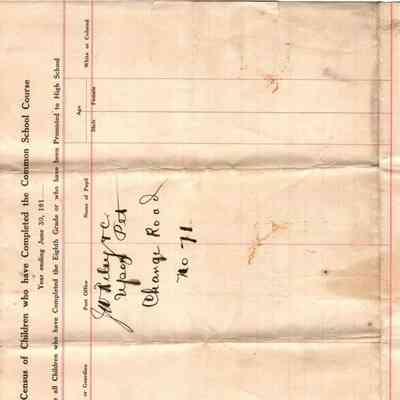 Census of Children who have Completed the Common School Course
Year ending June 30, 191
all Children who have Completed the Eighth Grade or who have been Promoted to High School
or Guardian
Post Office
Name of Pupil
Age
Male
Female
White or Colored
J W Riley & C
Upon Pet
Change Road
No 71